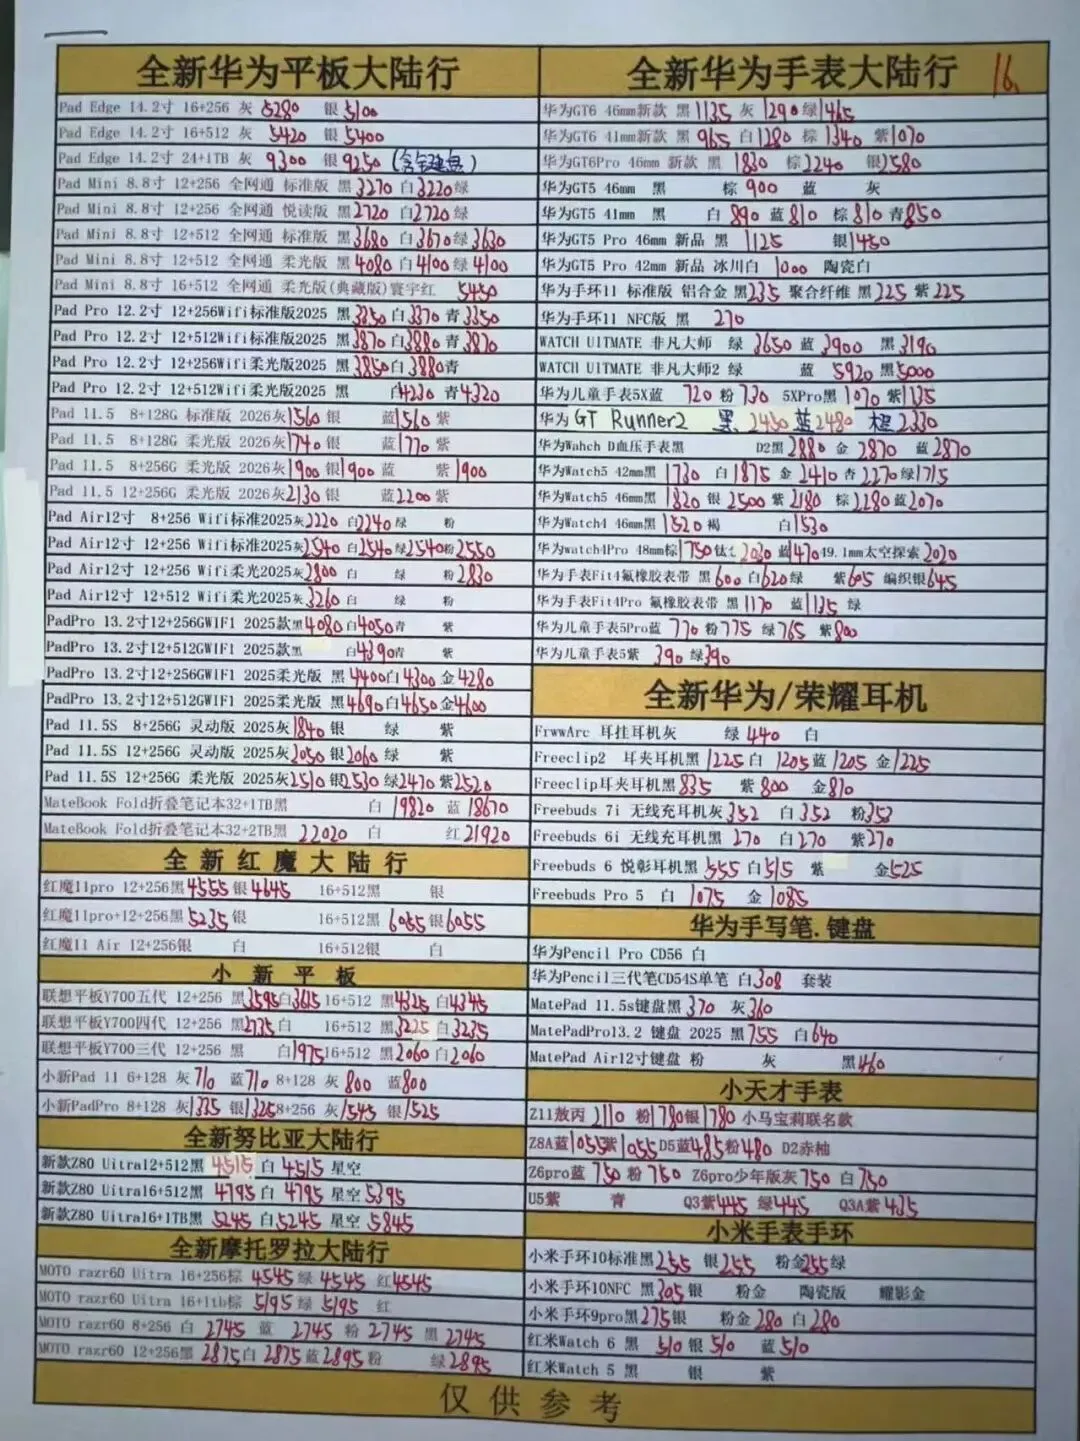 全新华为平板大陆行
Pad Edge 14.2寸 16+256 灰 5280 银 5100
Pad Edge 14.2寸 16+512 灰 5420 银 5400
Pad Edge 14.2寸 24+1TB 灰 9300 银 9250 (含键盘)
Pad Mini 8.8寸 12+256 全网通 标准版 黑 3270 白 3220 绿
Pad Mini 8.8寸 12+256 全网通 悦读版 黑 2720 白 2720 绿
Pad Mini 8.8寸 12+512 全网通 标准版 黑 3680 白 3670 绿 3630
Pad Mini 8.8寸 12+512 全网通 柔光版 黑 4080 白 4100 绿 4100
Pad Mini 8.8寸 16+512 全网通 柔光版(典藏版)寰宇红 5450
Pad Pro 12.2寸 12+256Wifi标准版2025 黑 3350 白 3370 青 3350
Pad Pro 12.2寸 12+512Wifi标准版2025 黑 3870 白 3880 青 3870
Pad Pro 12.2寸 12+256Wifi柔光版2025 黑 3850 白 3880 青
Pad Pro 12.2寸 12+512Wifi柔光版2025 黑 白 4230 青 4320
Pad 11.5 8+128G 标准版 2026灰 1560 银 蓝 1560 紫
Pad 11.5 8+128G 柔光版 2026灰 1740 银 蓝 1770 紫
Pad 11.5 8+256G 柔光版 2026灰 1900 银 1900 蓝 紫 1900
Pad 11.5 12+256G 柔光版 2026灰 2130 银 蓝 2200 紫
Pad Air12寸 8+256 Wifi标准2025灰 2220 白 2240 绿 粉
Pad Air12寸 12+256 Wifi标准2025灰 2540 白 2540 绿 2540 粉 2550
Pad Air12寸 12+256 Wifi柔光2025灰 2800 白 绿 粉 2830
Pad Air12寸 12+512 Wifi柔光2025灰 3260 白 绿 粉
PadPro 13.2寸12+256GWIF1 2025款黑 4080 白 4050 青 紫
PadPro 13.2寸12+512GWIF1 2025款黑 白 4390 青 紫
PadPro 13.2寸12+256GWIF1 2025柔光版 黑 4400 白 4300 金 4280
PadPro 13.2寸12+512GWIF1 2025柔光版 黑 4690 白 4650 金 4600
Pad 11.5S 8+256G 灵动版 2025灰 1840 银 绿 紫
Pad 11.5S 12+256G 灵动版 2025灰 2050 银 2060 绿 紫
Pad 11.5S 12+256G 柔光版 2025灰 2510 银 2530 绿 2470 紫 2520
MateBook Fold折叠笔记本32+1TB黑 白 19820 蓝 18670
MateBook Fold折叠笔记本32+2TB黑 22020 白 红 21920
全新红魔大陆行
红魔11pro 12+256黑 4555 银 4645 16+512黑 银
红魔11pro+12+256黑 5235 银 16+512黑 6055 银 6055
红魔11 Air 12+256银 白 16+512银 白
小新平板
联想平板Y700五代 12+256 黑 3595 白 3615 16+512 黑 4325 白 4345
联想平板Y700四代 12+256 黑 2735 白 16+512 黑 3225 白 3235
联想平板Y700三代 12+256 黑 白 1975 16+512 黑 2060 白 2060
小新Pad 11 6+128 灰 710 蓝 710 8+128 灰 800 蓝 800
小新PadPro 8+128 灰 1335 银 1325 8+256 灰 1545 银 1525
全新努比亚大陆行
新款Z80 Uitra12+512黑 4515 白 4515 星空
新款Z80 Uitra16+512黑 4795 白 4795 星空 5395
新款Z80 Uitra16+1TB黑 5245 白 5245 星空 5845
全新摩托罗拉大陆行
MOTO razr60 Uitra 16+256棕 4545 绿 4545 红 4545
MOTO razr60 Uitra 16+1tb棕 5195 绿 5195 红
MOTO razr60 8+256 白 2745 蓝 2745 粉 2745 黑 2745
MOTO razr60 12+256黑 2875 白 2875 蓝 2895 粉 绿 2895
全新华为手表大陆行 16.
华为GT6 46mm新款 黑 1135 灰 1290 绿 1465
华为GT6 41mm新款 黑 965 白 1280 棕 1340 紫 1070
华为GT6Pro 46mm 新款 黑 1830 棕 2240 银 2580
华为GT5 46mm 黑 棕 900 蓝 灰
华为GT5 41mm 黑 白 890 蓝 810 棕 810 青 850
华为GT5 Pro 46mm 新品 黑 1125 银 1450
华为GT5 Pro 42mm 新品 冰川白 1000 陶瓷白
华为手环11 标准版 铝合金 黑 235 聚合纤维 黑 225 紫 225
华为手环11 NFC版 黑 270
WATCH UlTMATE 非凡大师 绿 3650 蓝 3900 黑 3190
WATCH UlTMATE 非凡大师2 绿 蓝 5920 黑 5000
华为儿童手表5X蓝 720 粉 730 5XPro黑 1070 紫 1135
华为 GT Runner2 黑 2450 蓝 2480 橙 2330
华为Wahch D血压手表黑 D2黑 2880 金 2870 蓝 2870
华为Watch5 42mm黑 1730 白 1875 金 2410 杏 2270 绿 1715
华为Watch5 46mm黑 1820 银 2500 紫 2180 棕 2280 蓝 2070
华为Watch4 46mm黑 1520 褐 白 1530
华为watch4Pro 48mm棕 1750 钛 2030 蓝 1470 49.1mm太空探索 2020
华为手表Fit4氟橡胶表带 黑 600 白 620 绿 紫 605 编织银 645
华为手表Fit4Pro 氟橡胶表带 黑 1170 蓝 1135 绿
华为儿童手表5Pro蓝 770 粉 775 绿 765 紫 800
华为儿童手表5紫 390 绿 390
全新华为/荣耀耳机
FrwwArc 耳挂耳机灰 绿 440 白
Freeclip2 耳夹耳机黑 1225 白 1205 蓝 1205 金 1225
Freeclip耳夹耳机黑 835 紫 800 金 810
Freebuds 7i 无线充耳机灰 352 白 352 粉 352
Freebuds 6i 无线充耳机黑 270 白 270 紫 270
Freebuds 6 悦彰耳机黑 555 白 515 紫 金 525
Freebuds Pro 5 白 1075 金 1085
华为手写笔.键盘
华为Pencil Pro CD56 白
华为Pencil三代笔CD54S单笔 白 308 套装
MatePad 11.5s键盘黑 370 灰 360
MatePadPro13.2 键盘 2025 黑 755 白 640
MatePad Air12寸键盘 粉 灰 黑 460
小天才手表
Z11敖丙 2110 粉 1780 银 1780 小马宝莉联名款
Z8A蓝 1055 紫 1055 D5蓝 485 粉 480 D2赤柚
Z6pro蓝 750 粉 750 Z6pro少年版灰 750 白 750
U5紫 青 Q3紫 445 绿 445 Q3A紫 435
小米手表手环
小米手环10标准黑 255 银 255 粉金 255 绿
小米手环10NFC 黑 305 银 粉金 陶瓷版 耀影金
小米手环9pro黑 275 银 粉金 280 白 280
红米Watch 6 黑 510 银 510 蓝 510
红米Watch 5 黑 银 紫
仅供参考